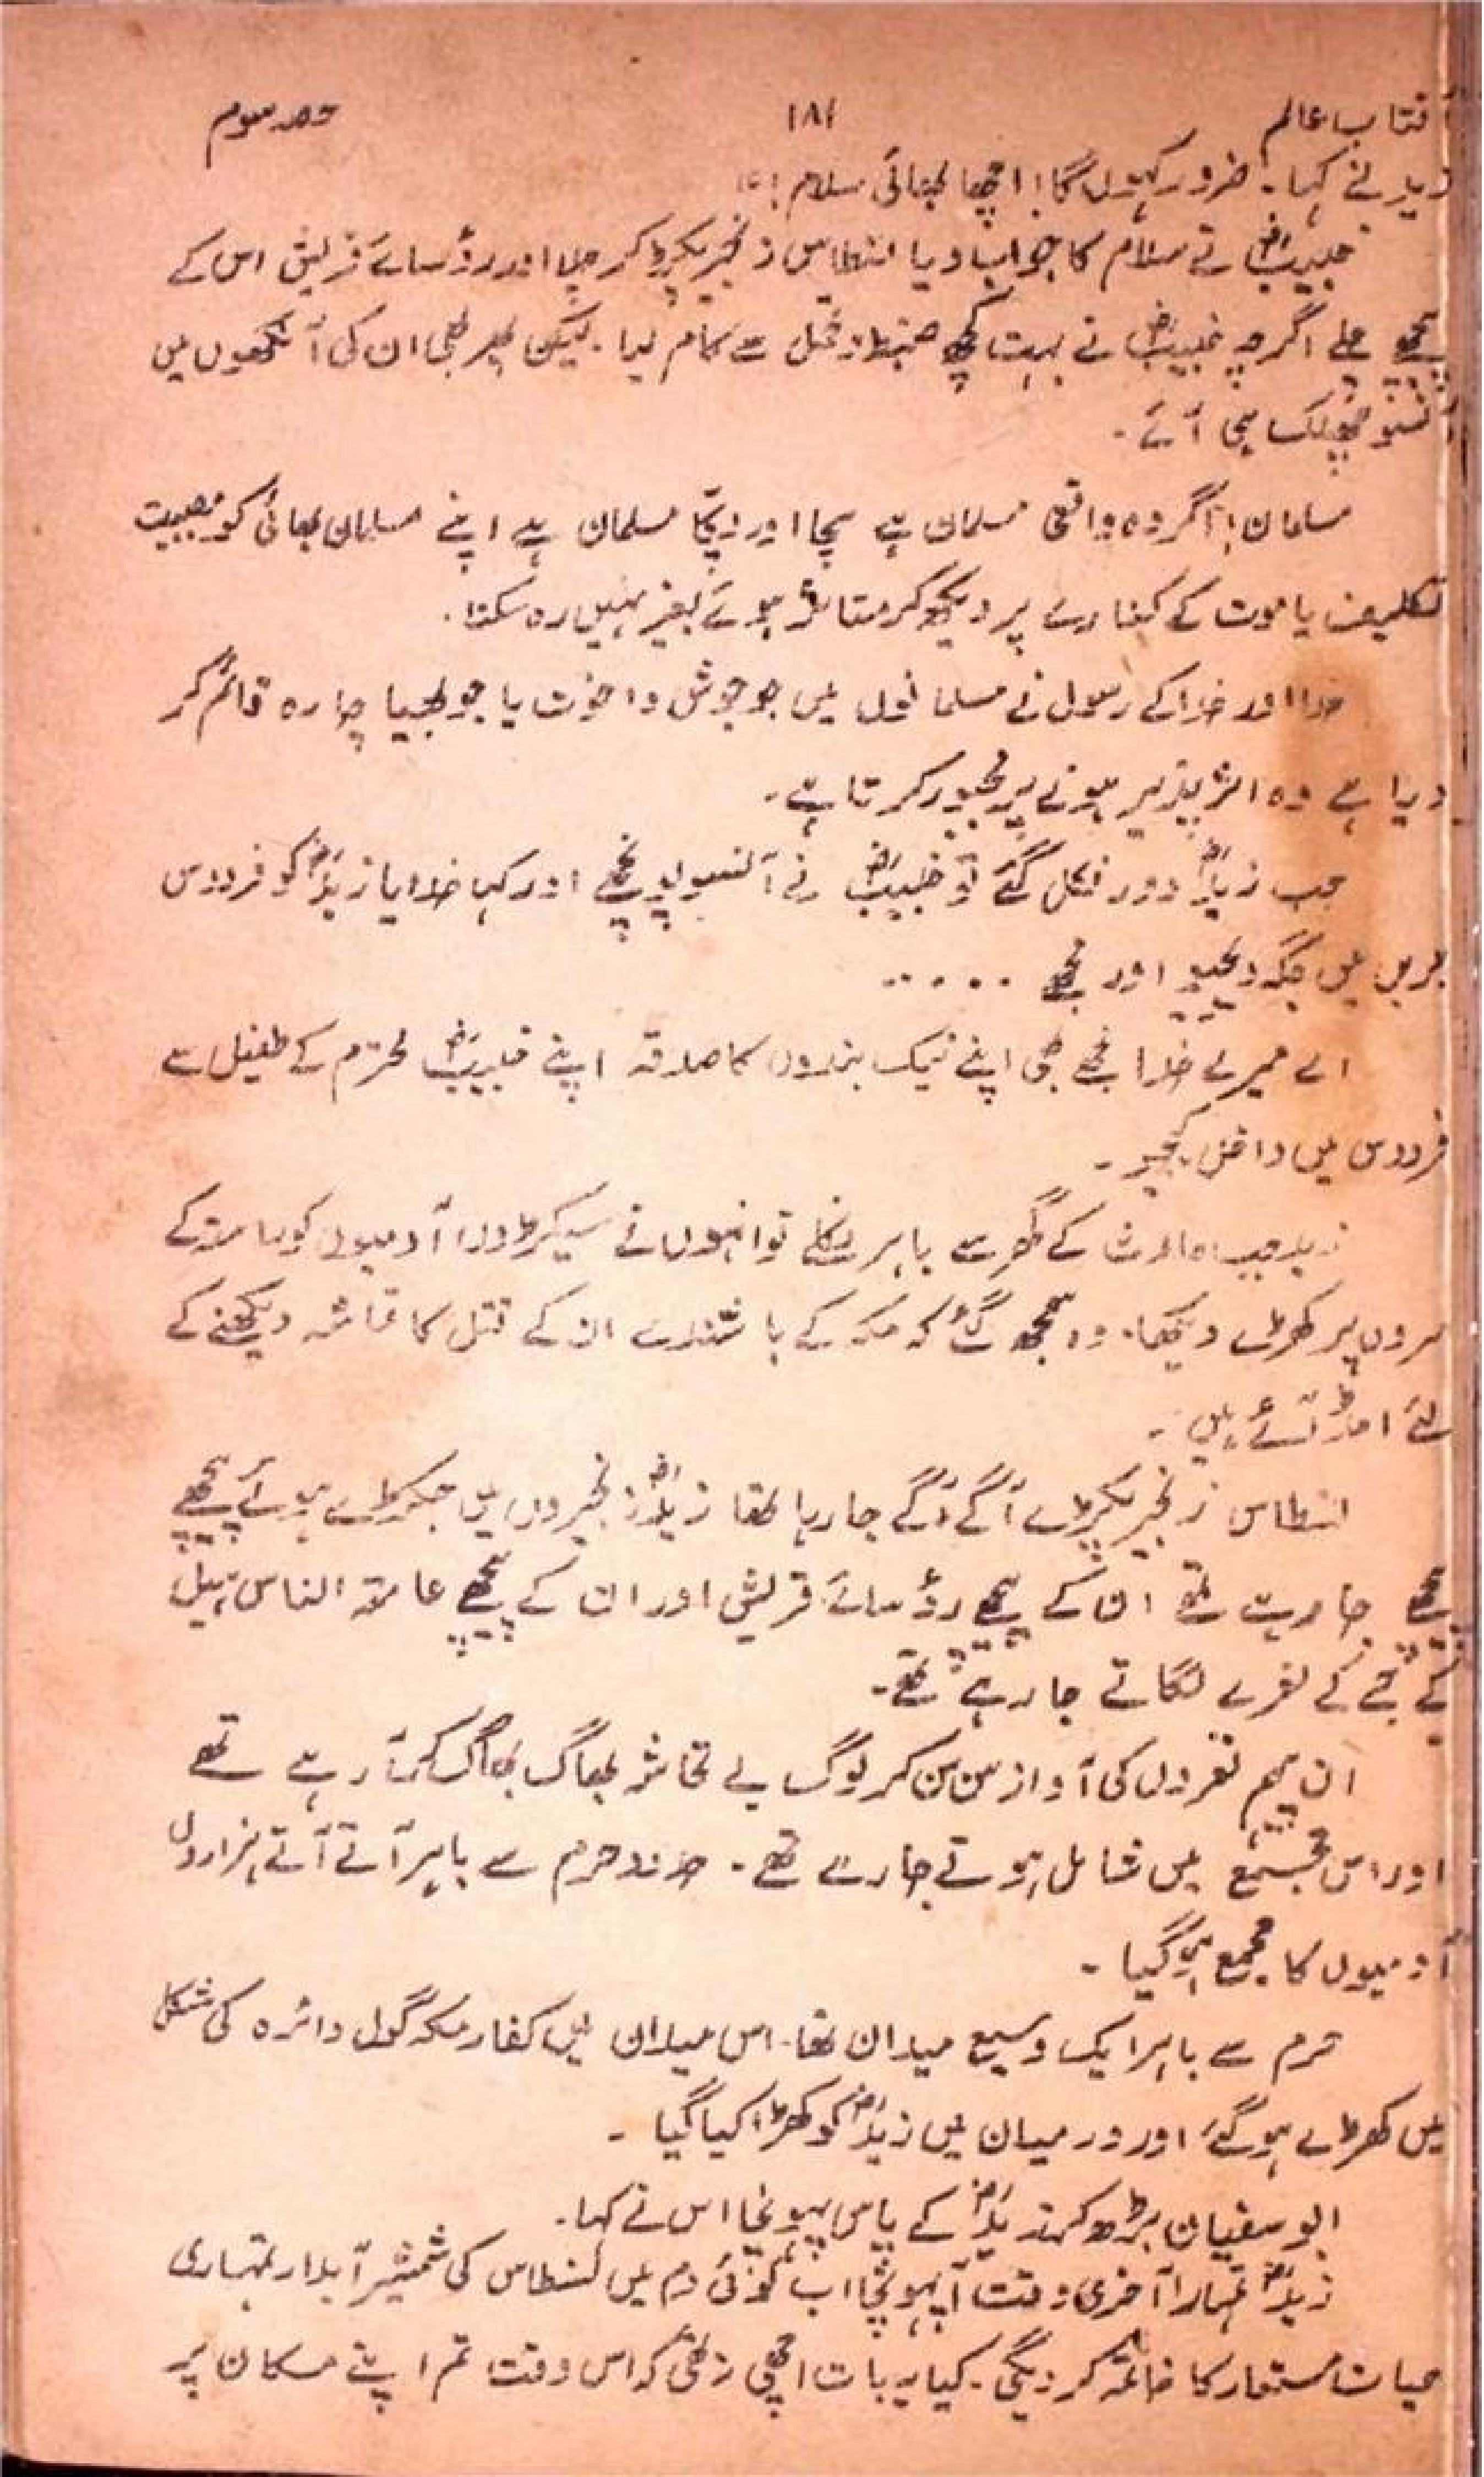 آفتاب عالم ۱۸۱ حصہ سوم
زید نے کہا۔ ضرور کہوں گا! اچھا بھائی سلام!؛؛
خبیبؓ نے سلام کا جواب دیا انطاس زنجیر پکڑ کر چلا اور رؤسائے قریش اس کے
پیچھے چلے اگرچہ خبیبؓ نے بہت کچھ ضبط و تحمل سے کام لیا۔ لیکن پھر بھی ان کی آنکھوں میں
آنسو چھلک ہی آئے۔
مسلمان! اگر وہ واقعی مسلمان ہے سچا اور پکا مسلمان ہے اپنے مسلمان بھائی کو مصیبت
تکلیف یا موت کے کنارے پر دیکھ کر متاثر ہوئے بغیر نہیں رہ سکتا۔
خدا اور خدا کے رسول نے مسلمانوں میں جو جوش و اخوت یا جو بھیا چارہ قائم کر
دیا ہے وہ اثر پذیر ہونے پر مجبور کرتا ہے۔
جب زیدؓ دور نکل گئے تو خبیبؓ نے آنسو پونچھے اور کہا خدایا زیدؓ کو فردوس
بریں میں جگہ دیجیو اور مجھے ......
اے میرے خدا مجھے بھی اپنے نیک بندوں کا صدقہ اپنے خبیبؓ محترم کے طفیل سے
فردوس میں داخل کیجیو۔
زید جب حارث کے گھر سے باہر نکلے تو انہوں نے سیکڑوں آدمیوں کو راستہ کے
سروں پر کھڑے دیکھا۔ وہ سمجھ گئے کہ مکہ کے باشندے ان کے قتل کا تماشہ دیکھنے کے
لئے امڈ آئے ہیں۔
انطاس زنجیر پکڑے آگے آگے جا رہا تھا زیدؓ زنجیروں میں جکڑے ہوئے پیچھے
پیچھے جا رہے تھے ان کے پیچھے رؤسائے قریش اور ان کے پیچھے عامۃ الناس ہبل
کی جے کے نعرے لگاتے جا رہے تھے۔
ان پیہم نعروں کی آواز سن سن کر لوگ بے تحاشہ بھاگ بھاگ کر آ رہے تھے
اور اس مجمع میں شامل ہوتے جا رہے تھے۔ حدود حرم سے باہر آتے آتے ہزاروں
آدمیوں کا مجمع ہو گیا۔
حرم سے باہر ایک وسیع میدان تھا۔ اس میدان میں کفار مکہ گول دائرہ کی شکل
میں کھڑے ہو گئے اور درمیان میں زیدؓ کو کھڑا کیا گیا۔
ابو سفیان بڑھ کر زیدؓ کے پاس پہونچا اس نے کہا۔
زیدؓ تمہارا آخری وقت آ پہونچا اب کوئی دم میں نسطاس کی شمشیر آبدار تمہاری
حیات مستعار کا خاتمہ کر دیگی۔ کیا یہ بات اچھی نہ تھی کہ اس وقت تم اپنے مکان پر